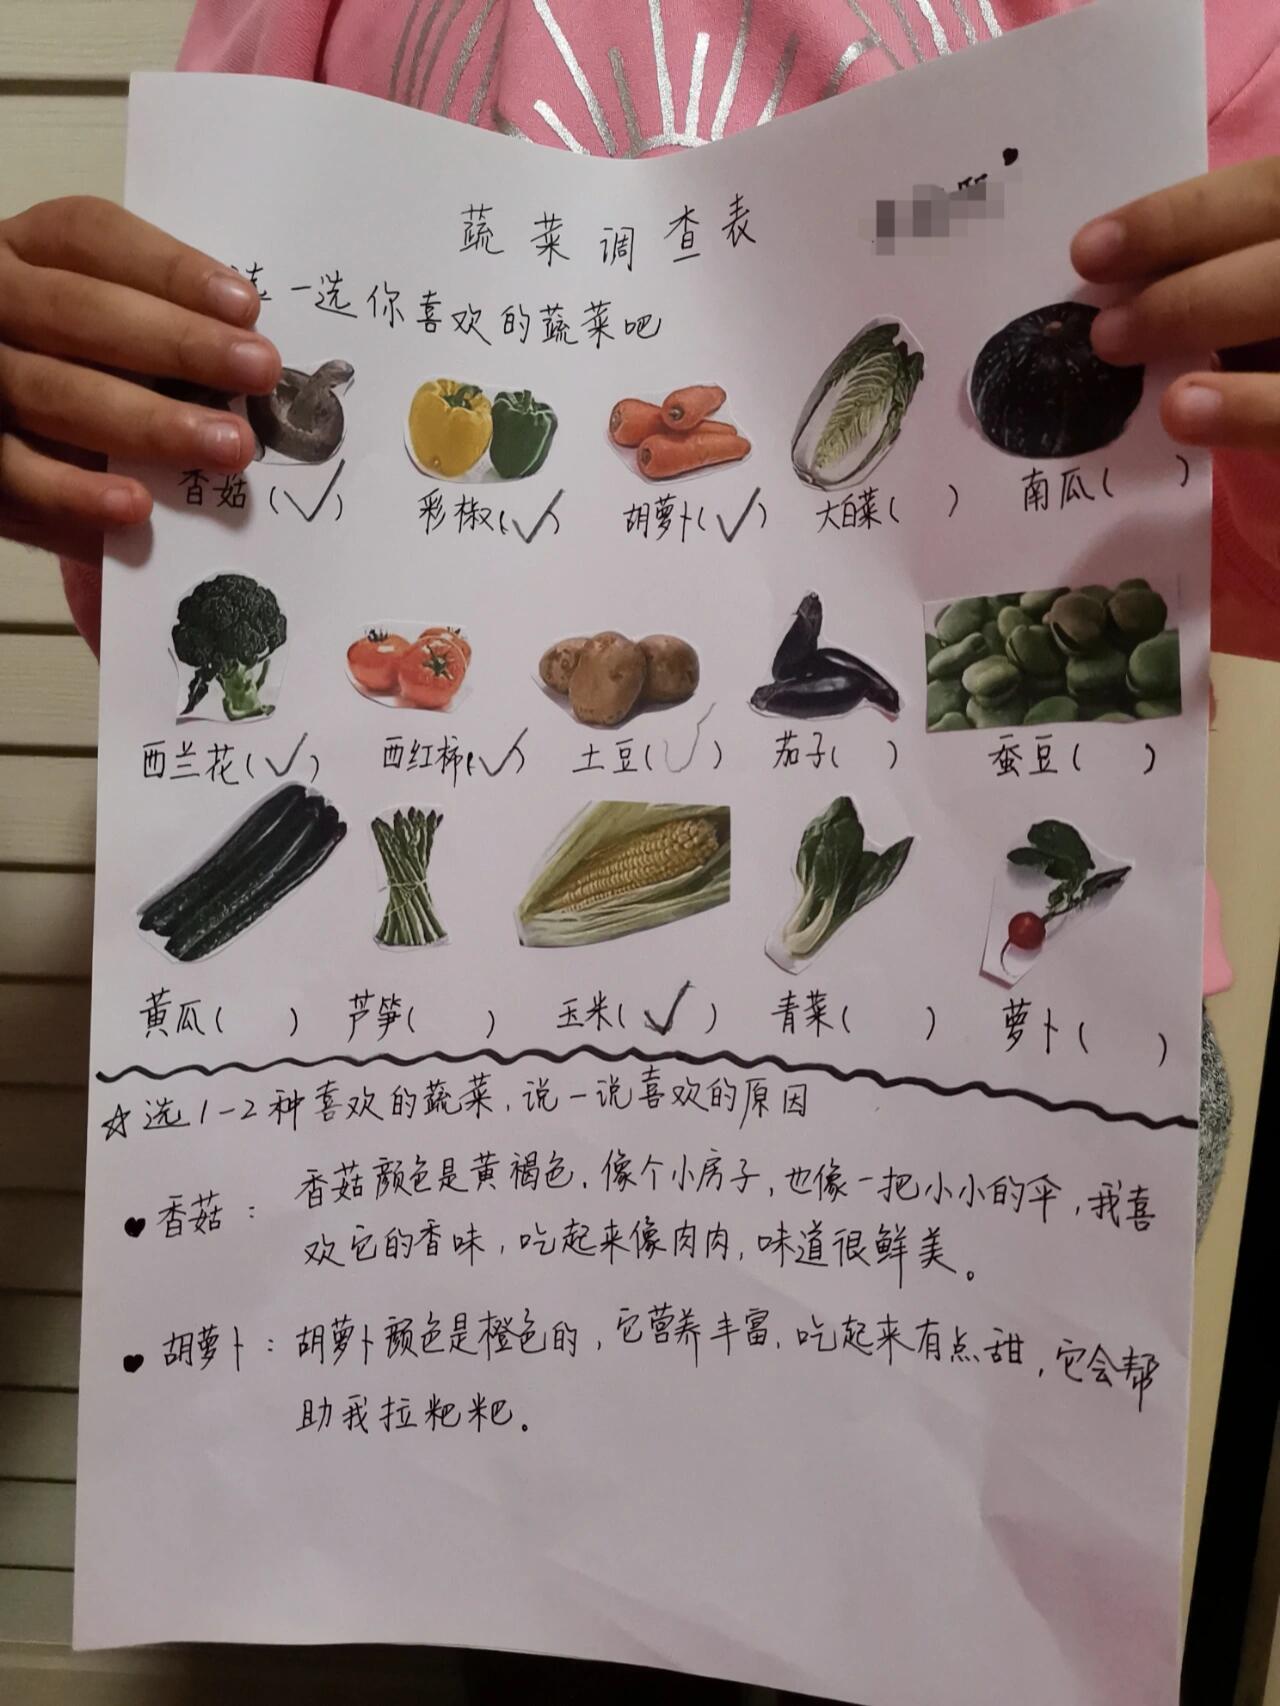 蔬菜调查表
选一选你喜欢的蔬菜吧
香菇(✓) 彩椒(✓) 胡萝卜(✓) 大白菜( ) 南瓜( )
西兰花(✓) 西红柿(✓) 土豆(✓) 茄子( ) 蚕豆( )
黄瓜( ) 芦笋( ) 玉米(✓) 青菜( ) 萝卜( )
☆选1-2种喜欢的蔬菜,说一说喜欢的原因
♥香菇: 香菇颜色是黄褐色,像个小房子,也像一把小小的伞,我喜
欢它的香味,吃起来像肉肉,味道很鲜美。
♥胡萝卜: 胡萝卜颜色是橙色的,它营养丰富,吃起来有点甜,它会帮
助我拉粑粑。